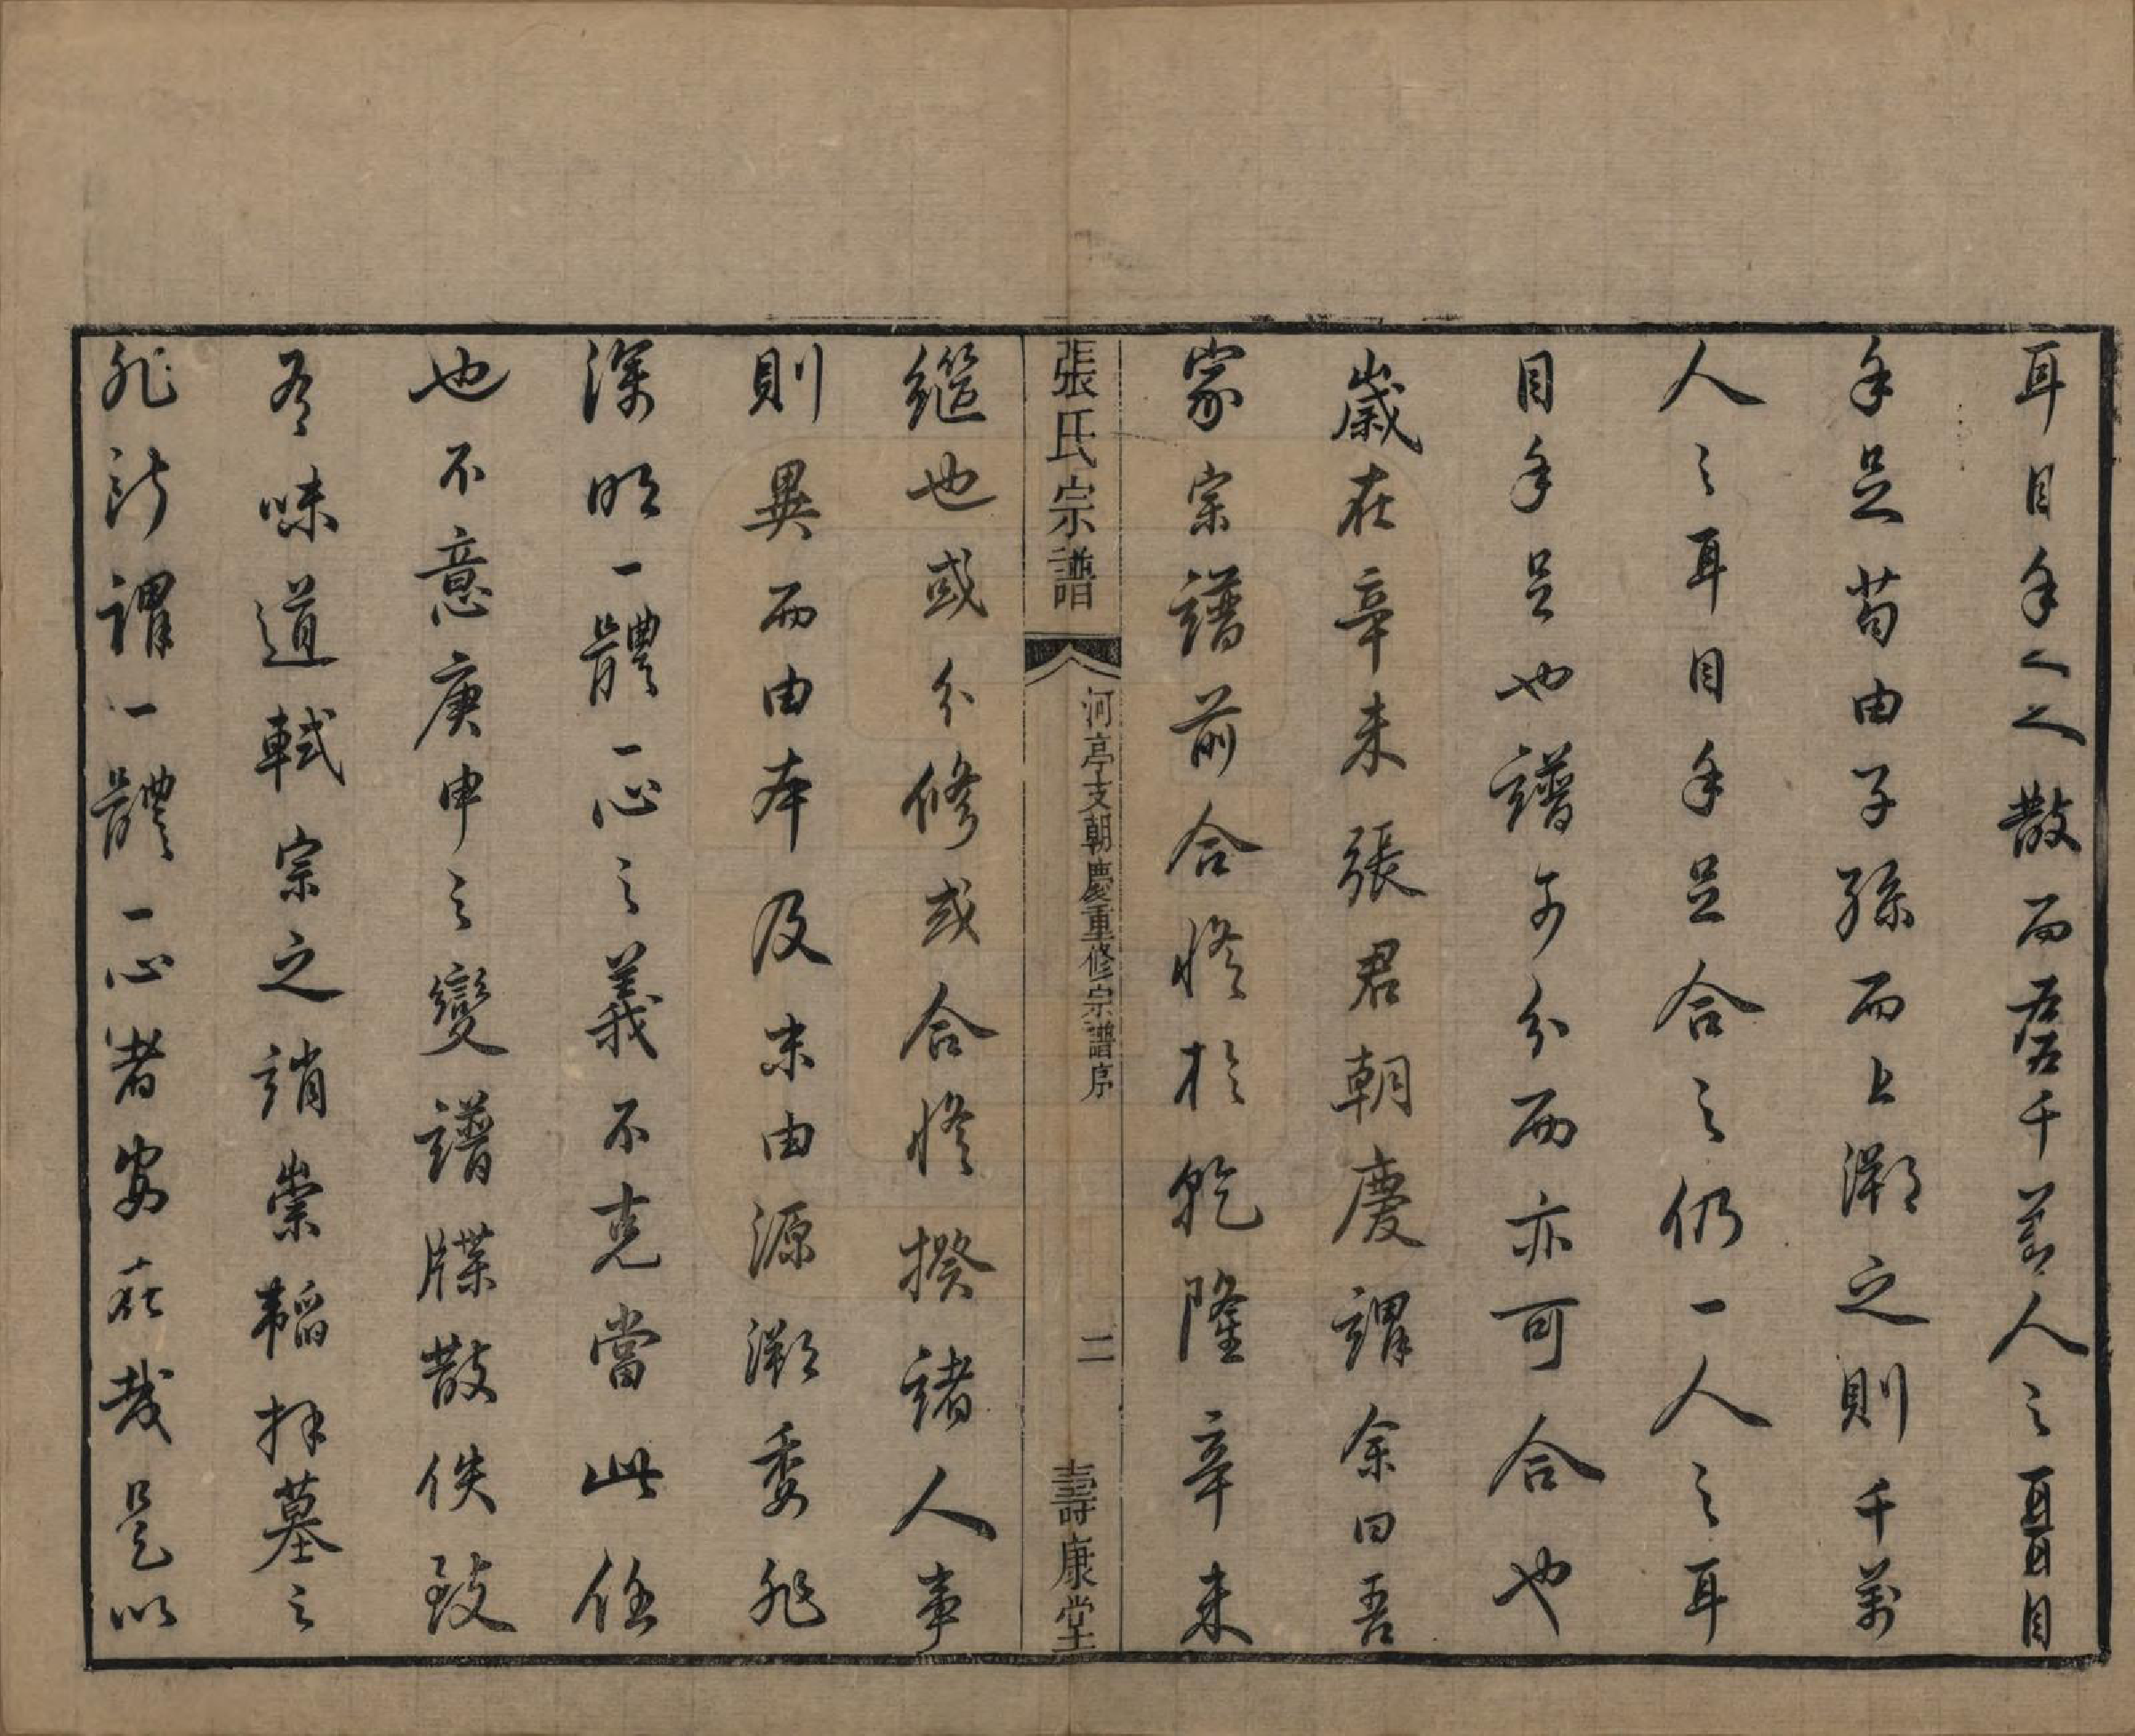 耳目手足之散而爲千萬人之耳目
手足苟由子孫而上溯之則千萬
人之耳目手足合之仍一人之耳
目手足也譜可分而亦可合也
歲在辛未張君朝慶謂余曰吾
家宗譜前合修於乾隆辛未
張氏宗譜
河亭支朝慶重修宗譜序
二
壽康堂
繼也或分修或合修揆諸人事
則異而由本及末由源溯委非
深明一體一心之義不克當此任
也不意庚申之變譜牒散佚致
有味道軾宗之誚崇韜拜墓之
非所謂一體一心者安在哉是以